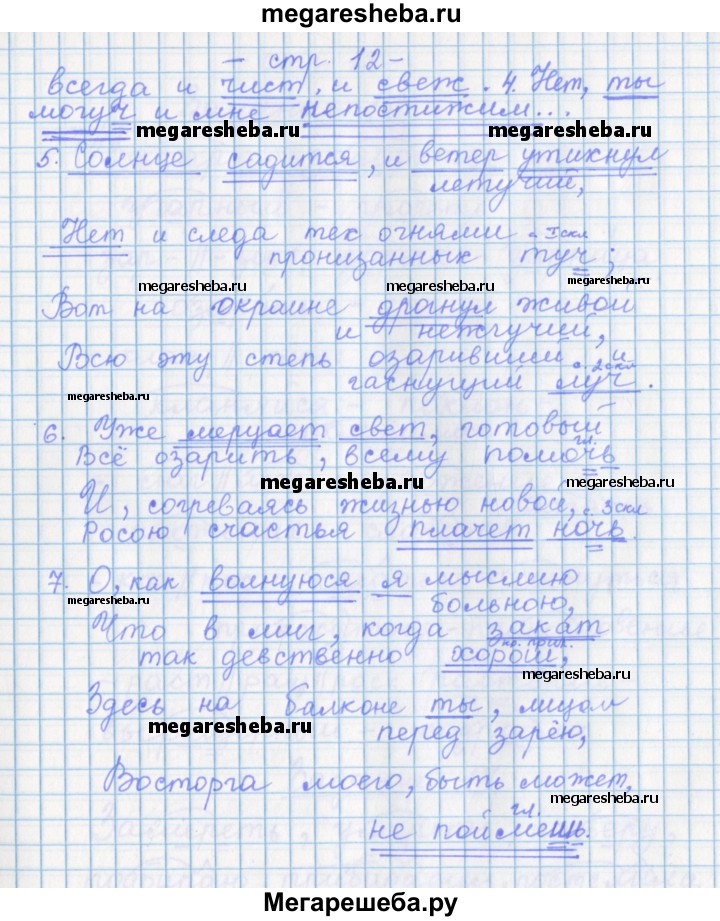 megaresheba.ru
- стр. 12 -
всегда и чист, и свеж. 4. Нет, ты
могуч и мне непостижим...
megaresheba.ru megaresheba.ru
5. Солнце садится, и ветер утихнул
летучий,
Нет и следа тех огнями с. 1скл
пронизанных туч;
megaresheba.ru megaresheba.ru
Вот на окраине дрогнул живой
и нежгучий,
Всю эту степь озаривший и
megaresheba.ru с. 2скл
гаснущий луч.
6. Уже мерцает свет, готовый
гл.
Всё озарить, всему помочь
megaresheba.ru megaresheba.ru
И, согреваясь жизнью новой, с. 3скл
Росою счастья плачет ночь.
7. О, как волнуюся я мыслию
megaresheba.ru больною,
Что в миг, когда закат
кр. прил.
так девственно хорош,
megaresheba.ru
Здесь на балконе ты, лицом
megaresheba.ru перед зарёю,
Восторга моего, быть может,
megaresheba.ru
гл.
не поймешь.
Мегарешеба.ру